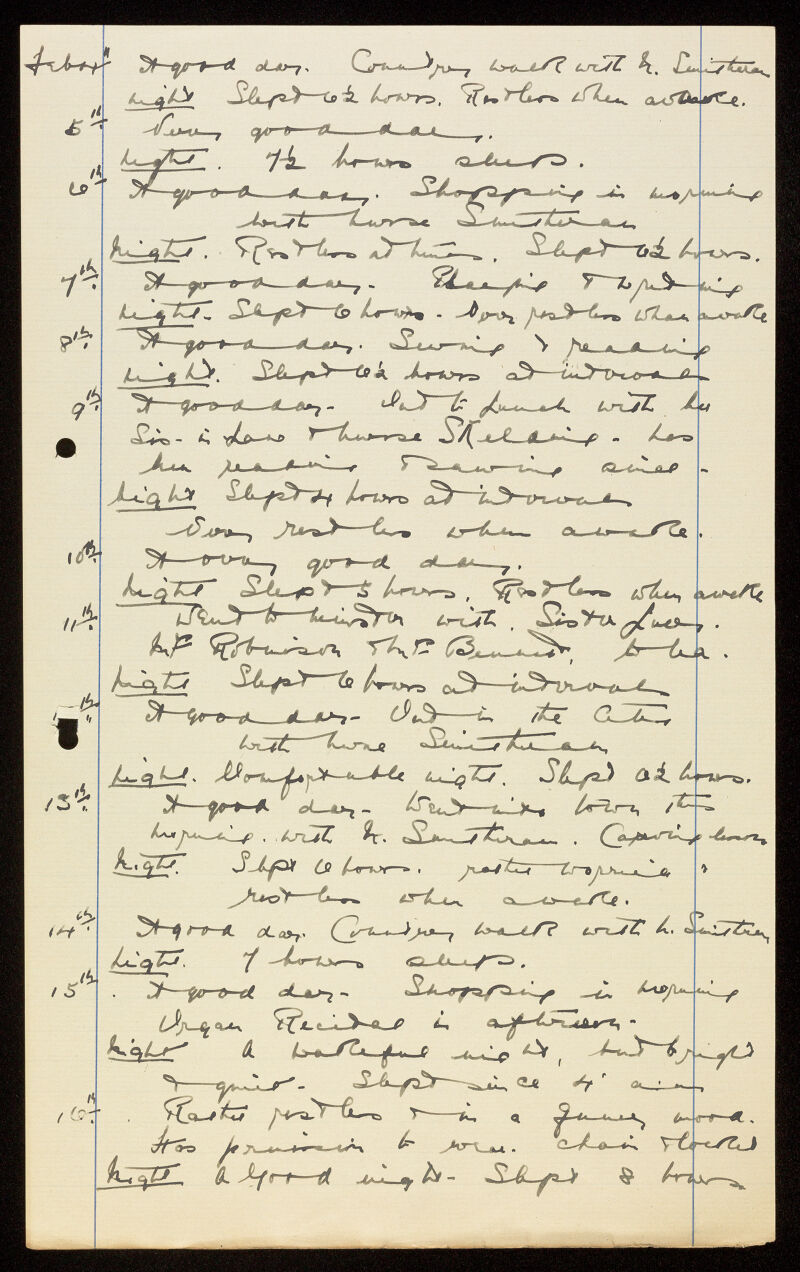 A good day. Country walk with N. Smitheran
Night Slept 6½ hours. Restless when awake.
5th Very good day.
Night. 7½ hours sleep.
6th A good day. Shopping in morning
with Nurse Smitheran
Night. Restless at times. Slept 6½ hours.
7th A good day.
Night. Slept 6 hours. Very restless when awake
8th A good day. Sewing & reading
Night. Slept 6½ hours at intervals
9th A good day. Out to lunch with her
Sis-in Law & Nurse Skelding. has
been reading & sewing since.
Night Slept 4 hours at intervals
Very restless when awake.
10th A very good day.
Night Slept 5 hours. Restless when awake
11th Went to Minster with Sister Lucy.
Mrs Robinson & Mrs Bennett to tea.
Night Slept 6 hours at intervals
A good day. Out in the
with Nurse Smitheran
Night. Comfortable night. Slept 6½ hours.
13th A good day. Went into town this
morning with N. Smitheran. Carving lesson
Night. Slept 6 hours. rather worrying &
restless when awake.
14th A good day. Country walk with N. Smitheran
Night. 7 hours sleep.
15th. A good day. Shopping in morning
Organ Recital in afternoon.
Night A wakeful night, but bright
& quiet. Slept since 4 a.m
16th. Rather restless & in a funny mood.
Has permission to wear chain & locket
Night A good night. Slept 8 hours